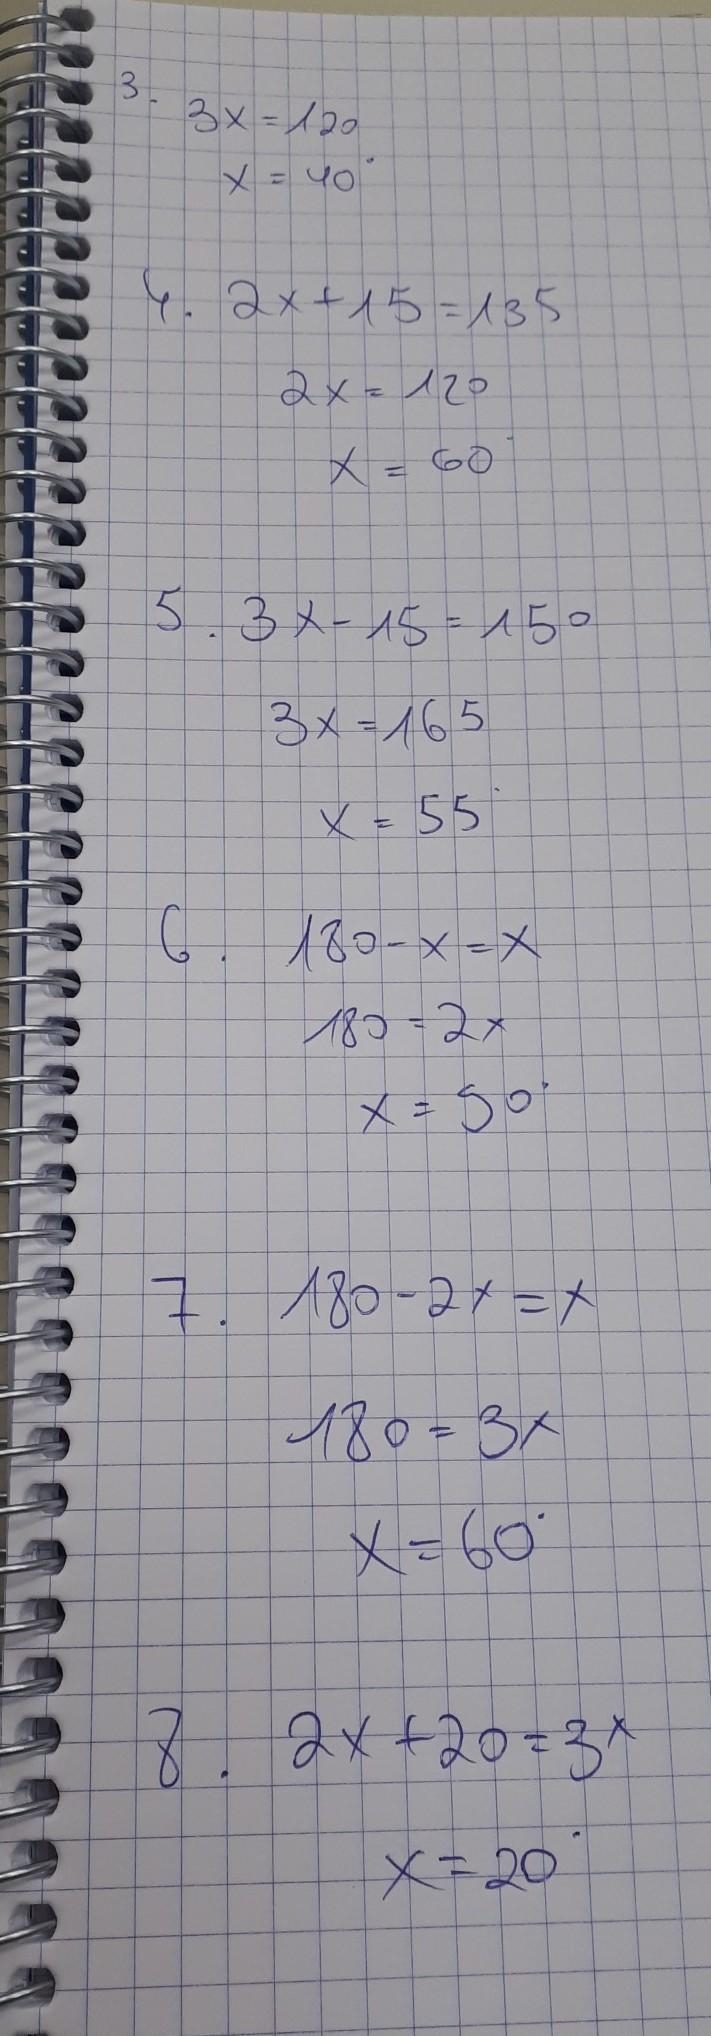 3.
3x = 120
x = 40°
4. 2x + 15 = 135
2x = 120
x = 60°
5. 3x - 15 = 150
3x = 165
x = 55°
6. 180 - x = x
180 = 2x
x = 90°
7. 180 - 2x = x
180 = 3x
x = 60°
8. 2x + 20 = 3x
x = 20°